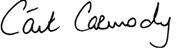 Cáit Carmody